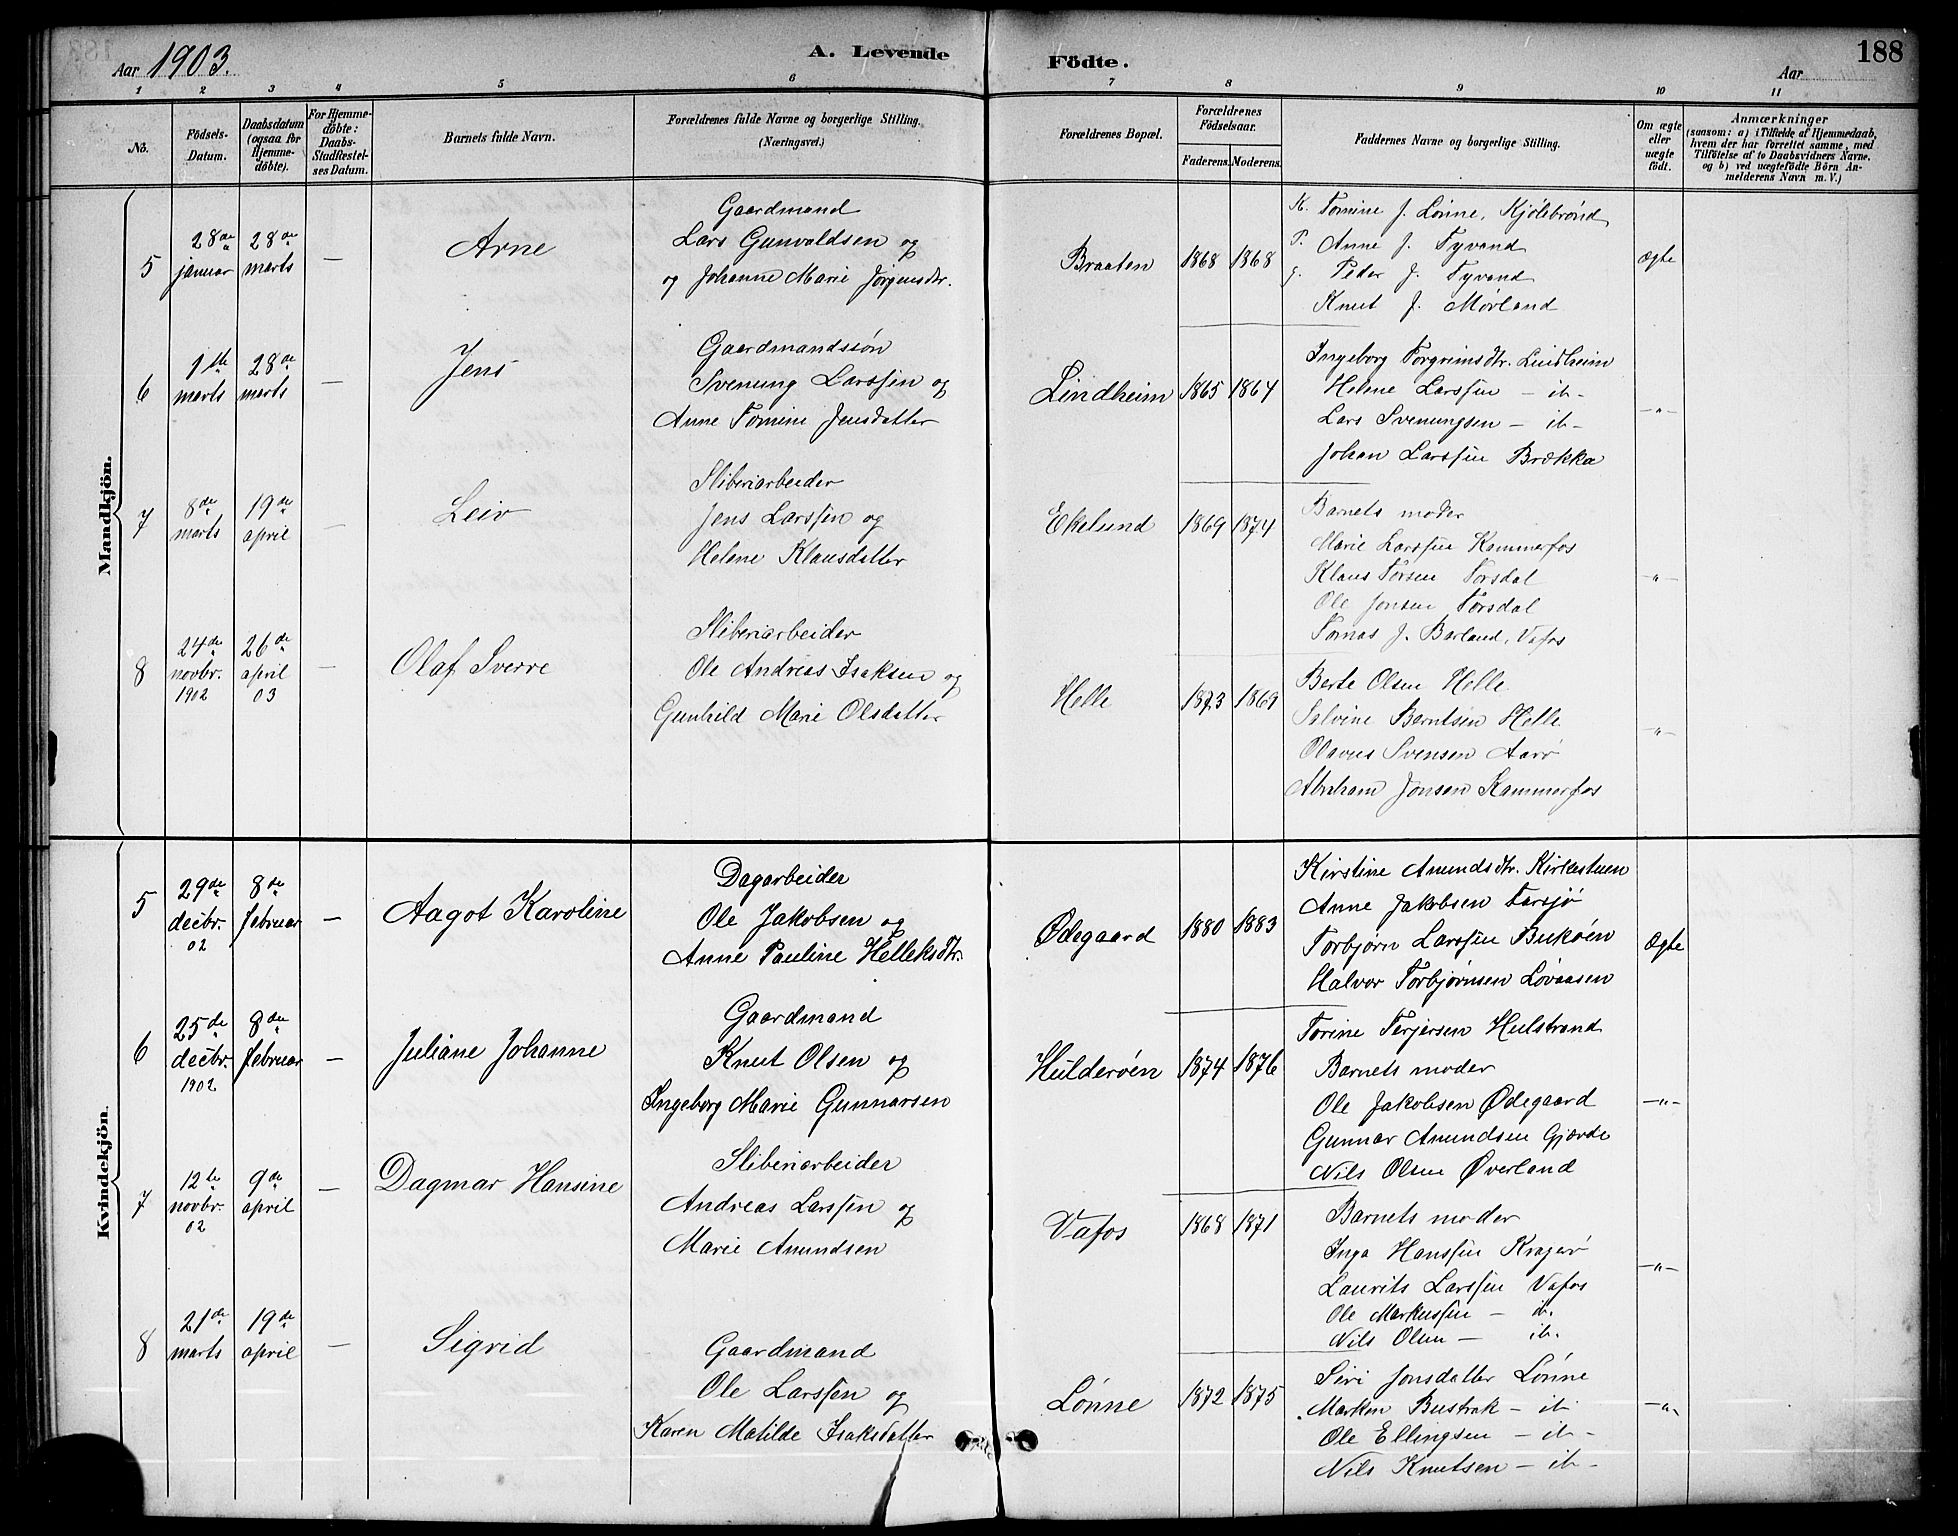 Aar 1903.
A. Levende Födte.
188
Aar
1 2 3 4 5 6 7 8 9 10 11
No.
Födsels-Datum.
Daabsdatum (ogsaa for Hjemme-döbte).
For Hjemme-döbte: Daabs-Stadfæstel-ses Datum.
Barnets fulde Navn.
Forældrenes fulde Navne og borgerlige Stilling. (Næringsvei.)
Forældrenes Bopæl.
Forældrenes Födselsaar.
Faderens. Moderens.
Faddernes Navne og borgerlige Stilling.
Om ægte eller uægte födt.
Anmærkninger
(saasom: a) i Tilfælde af Hjemmedaab,
hvem der har forrettet samme, med
Tilföielse af to Daabsvidners Navne.
og b) ved uægtefödte Börn An-
melderens Navn m. V.)
Mandkjön.
5
28de januar
28de marts
—
Arne
Gaardmand
Lars Gunvaldsen og
og Johanne Marie Jörgensdtr.
Braaten
1868
1868
K. Tomine J. Lønne, Kjølebrønd
P. Anne J. Tyvand
g. Peder J. Tyvand
Knut J. Mørland
ægte
6
1ste marts
28de marts
—
Jens
Gaardmandssön
Svenung Larssen og
Anne Tomine Jensdatter
Lindheim
1865
1864
Ingeborg Torgrimsdtr. Lindheim
Helene Larssen — ib —
Lars Svenungsen — ib —
Johan Larssen Brækka
—"—
7
8de marts
19de april
—
Leiv
Sliberiarbeider
Jens Larssen og
Helene Klausdatter
Ekelund
1869
1874
Barnets moder
Marie Larssen Kammerfos
Klaus Torsen Torsdal
Ole Jonsen Torsdal
Tomas J. Barland, Vafos
—"—
8
24de novbr. 1902
26de april 03
—
Olaf Sverre
Sliberiarbeider
Ole Andreas Isaksen og
Gunhild Marie Olsdatter
Helle
1873
1869
Berte Olsen Helle
Selvine Berntsen Helle
Olavus Svensen Aarö
Abraham Jonsen Kammerfos
—"—
Kvindekjön.
5
29de decbr. 02
8de februar
—
Aagot Karoline
Dagarbeider
Ole Jakobsen og
Anne Pauline Helleksdtr.
Ødegaard
1880
1883
Kirstine Amundsdtr. Kirkestuen
Anne Jakobsen Farsjø
Torbjørn Larssen Bukøen
Halvor Torbjørnsen Løvaasen
Ægte
6
25de decbr. 1902
8de februar
—
Juliane Johanne
Gaardmand
Knut Olsen og
Ingeborg Marie Gunnarsen
Hulderöen
1874
1876
Torine Terjersen Hulstrand
Barnets moder
Ole Jakobsen Ødegaard
Gunnar Amundsen Gjærde
Nils Olsen Øverland
—"—
7
12te novbr. 02
9de april
—
Dagmar Hansine
Sliberiarbeider
Andreas Larssen og
Marie Amundsen
Vafos
1868
1871
Barnets moder
Inga Hanssen Kragerö
Laurits Larssen Vafos
Ole Markussen — ib.
Nils Olsen — ib.
—"—
8
21de marts
19de april
—
Sigrid
Gaardmand
Ole Larssen og
Karen Matilde Isaksdatter
Lønne
1872
1875
Siri Jonsdatter Lønne
Marken Bustrak — ib
Ole Ellingsen — ib —
Nils Knutsen — ib —
—"—